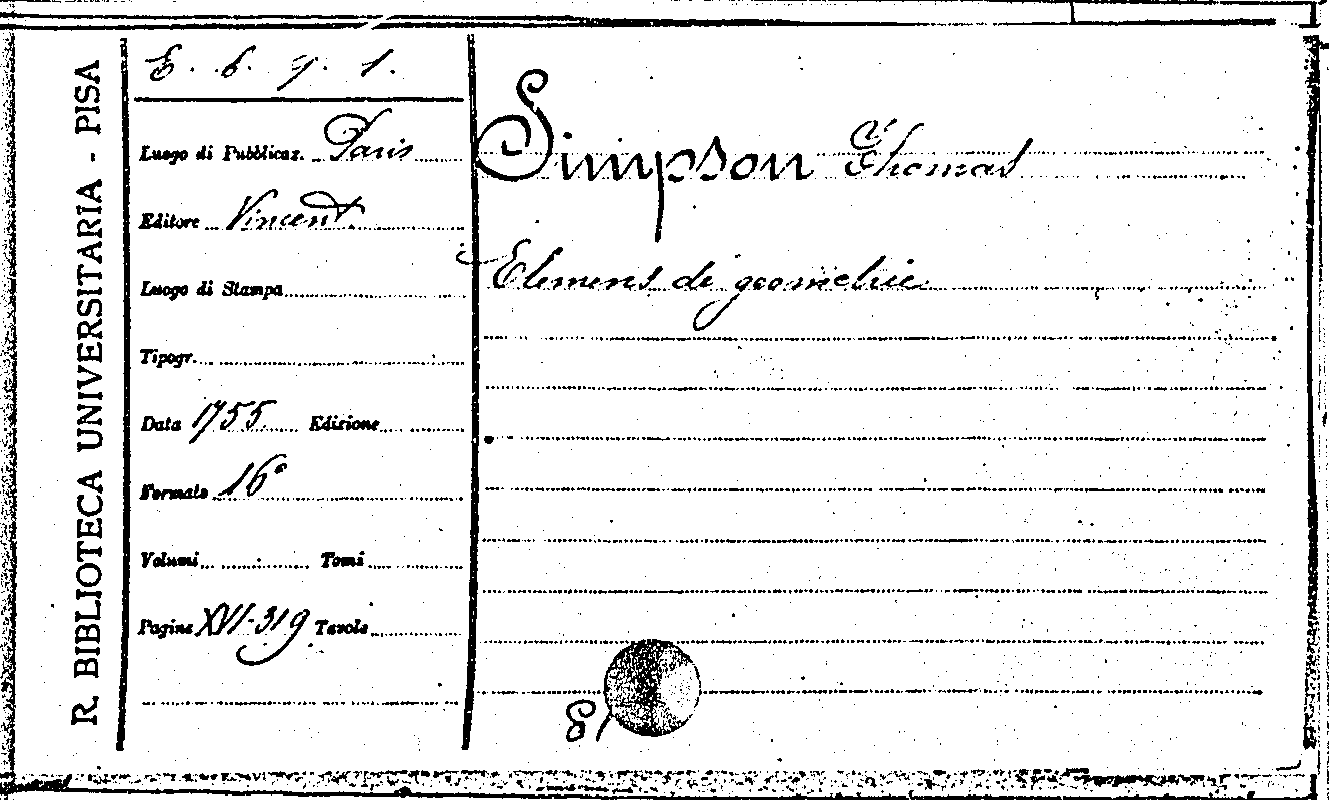 R. BIBLIOTECA UNIVERSITARIA - PISA
E. 6. 9. 1.
Luogo di Pubblicaz. Paris
Editore Vincent
Luogo di Stampa
Tipogr.
Data 1755 Edizione
Formato 16°
Volumi Tomi
Pagine XVI-319 Tavole
Simpson Thomas
Elemens de geometrie
81